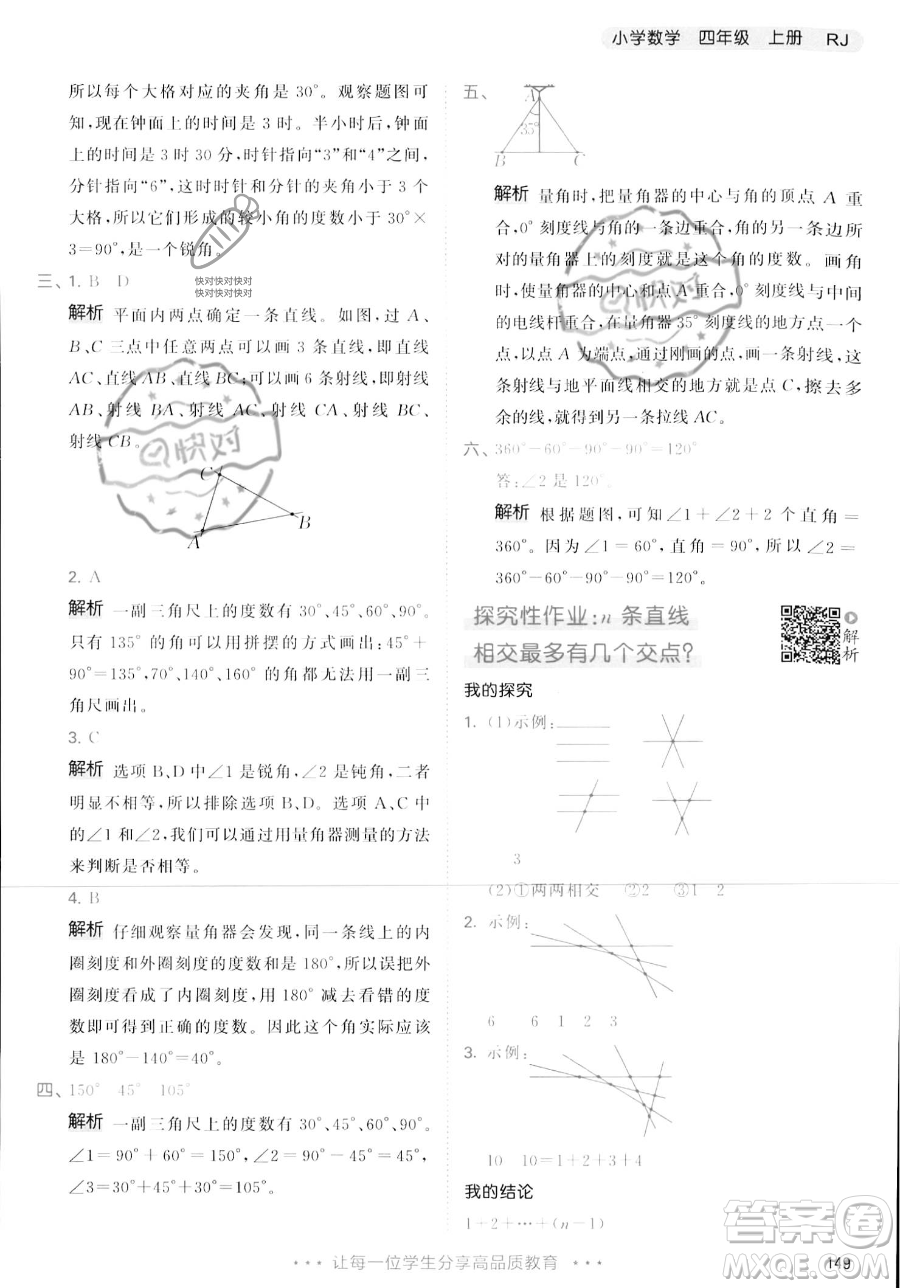 小学数学 四年级 上册 RJ
所以每个大格对应的夹角是 30°。观察题图可
知,现在钟面上的时间是 3 时。半小时后,钟面
上的时间是 3 时 30 分,时针指向“3”和“4”之间,
分针指向“6”,这时时针和分针的夹角小于 3 个
大格,所以它们形成的较小角的度数小于 30°×
3=90°,是一个锐角。
快对快对快对
快对快对快对
三、1. B D
解析 平面内两点确定一条直线。如图,过 A、
B、C 三点中任意两点可以画 3 条直线,即直线
AC、直线 AB、直线 BC;可以画 6 条射线,即射线
AB、射线 BA、射线 AC、射线 CA、射线 BC、
射线 CB。
快对
C
B
A
2. A
解析 一副三角尺上的度数有 30°、45°、60°、90°。
只有 135° 的角可以用拼摆的方式画出:45°+
90°=135°,70°、140°、160° 的角无法用一副三
角尺画出。
3. C
解析 选项 B、D 中∠1 是锐角,∠2 是钝角,二者
明显不相等,所以排除选项 B、D。选项 A、C 中
的∠1 和∠2,我们可以通过用量角器测量的方法
来判断是否相等。
4. B
解析 仔细观察量角器会发现,同一条线上的内
圈刻度和外圈刻度的度数和是 180°,所以误把外
圈刻度看成了内圈刻度,用 180° 减去看错的度
数即可得到正确的度数。因此这个角实际应该
是 180°-140°=40°。
四、150° 45° 105°
解析 一副三角尺上的度数有 30°、45°、60°、90°。
∠1=90°+60°=150°,∠2=90°-45°=45°,
∠3=180°-30°-45°=105°。
五、
A
35°
B C
解析 量角时,把量角器的中心与角的顶点 A 重
合,0° 刻度线与角的一条边重合,角的另一条边所
对的量角器上的刻度就是这个角的度数。画角
时,使量角器的中心和点 A 重合,0° 刻度线与中间
的电线杆重合,在量角器 35° 刻度线的地方点一个
点,以点 A 为端点,通过刚画的点画一条射线,
射线与地平面线相交的地方就是点 C,擦去多
余的线,就得到了另一条拉线 AC。
快对
六、360°-60°-90°-90°=120°
答:∠2 是 120°。
解析 根据题图,可知∠1+∠2+2 个直角=
360°。因为∠1=60°,直角=90°,所以∠2=
360°-60°-90°-90°=120°。
探究性作业:n 条直线
相交最多有几个交点?
解析
我的探究
1. (1)示例:
3
(2)①两两相交 ②2 ③1 2
2. 示例:
6 6 1 2 3
3. 示例:
10 10=1+2+3+4
我的结论
1+2+…+(n-1)
让每一位学生分享高品质教育
149
答案卷
MXQE.COM